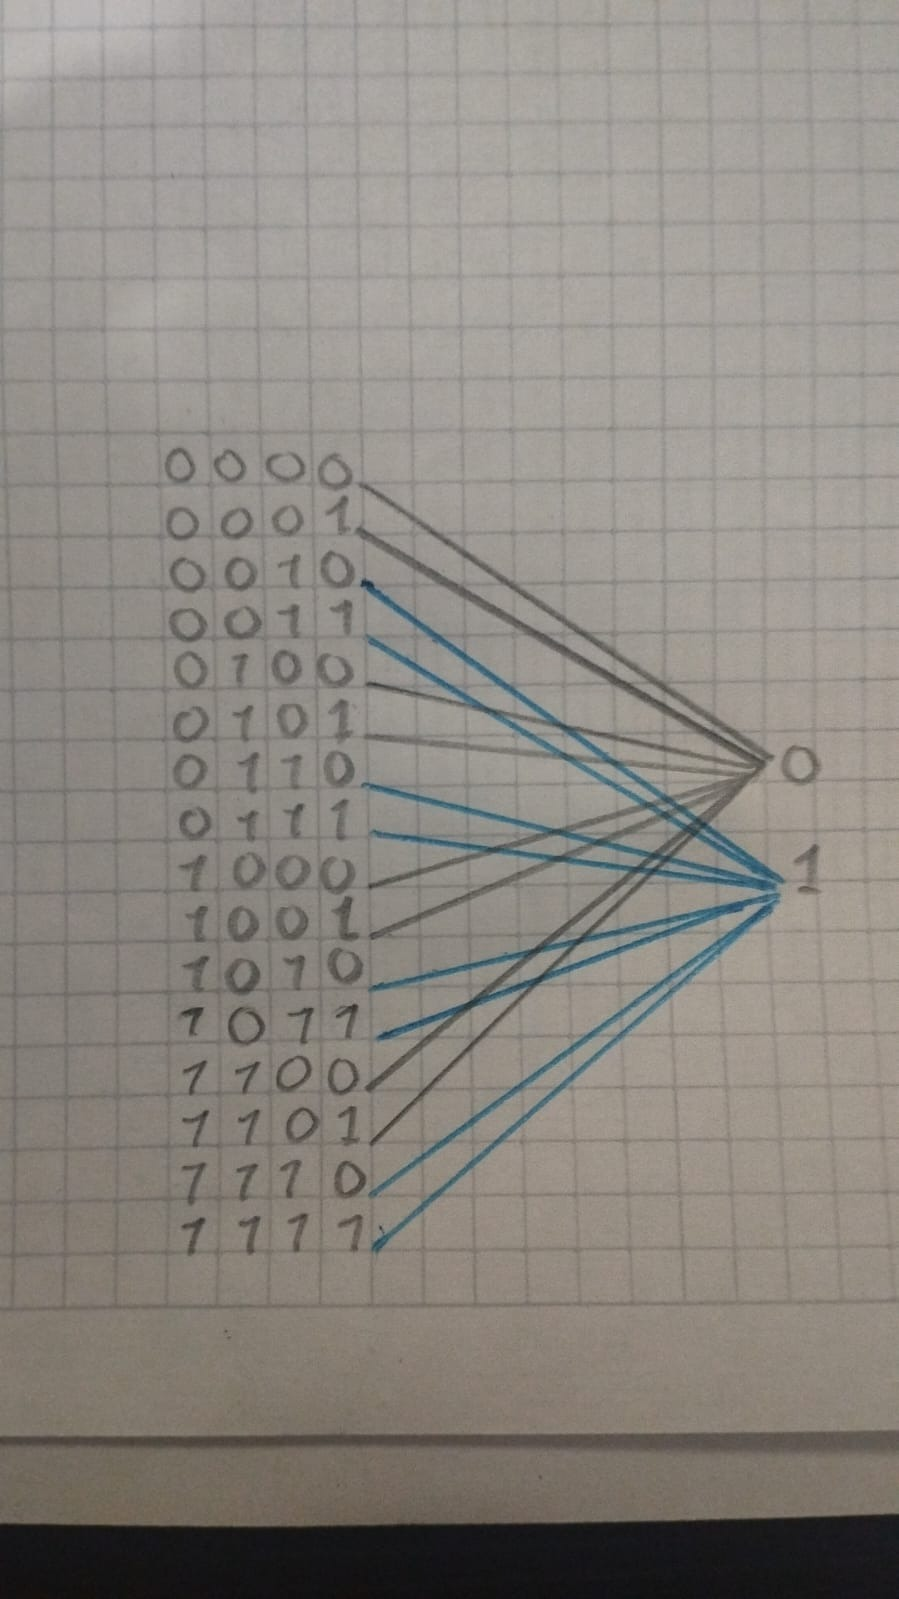 0 0 0 0
0 0 0 1
0 0 1 0
0 0 1 1
0 1 0 0
0 1 0 1
0 1 1 0
0 1 1 1
1 0 0 0
1 0 0 1
1 0 1 0
1 0 1 1
1 1 0 0
1 1 0 1
1 1 1 0
1 1 1 1
0
1